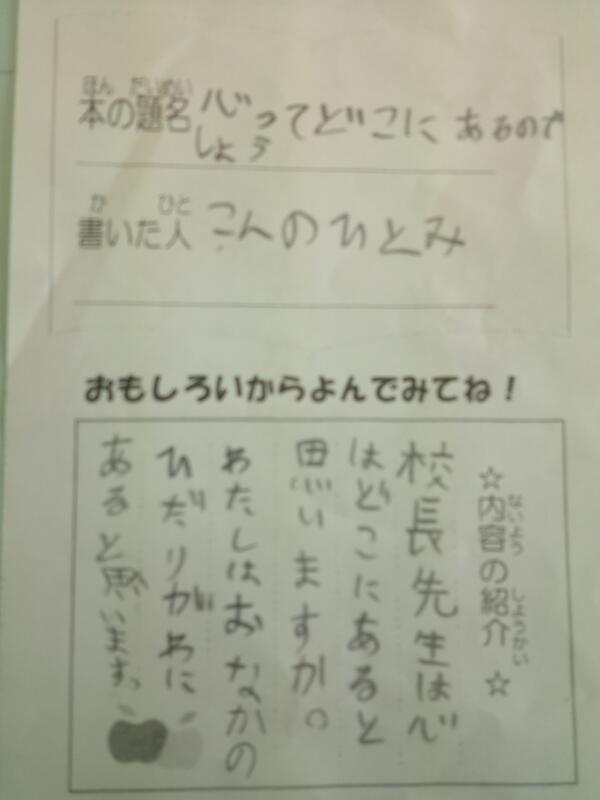 ほん だいめい
本の題名 心ってどこにあるので
しょう
か ひと
書いた人 こんのひとみ
おもしろいからよんでみてね！
☆内容の紹介☆
ないよう しょうかい
校長先生は心
はどこにあると
思いますか。
わたしはおなかの
ひだりがわに
あると思います。